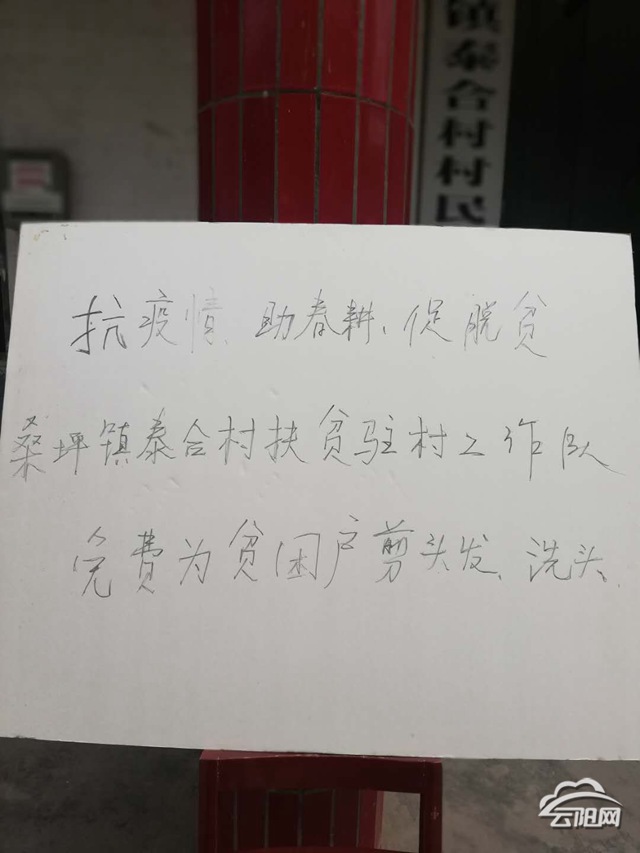 镇泰合村村民
抗疫情、助春耕、促脱贫
桑坪镇泰合村扶贫驻村工作队
免费为贫困户剪头发、洗头、
云阳网